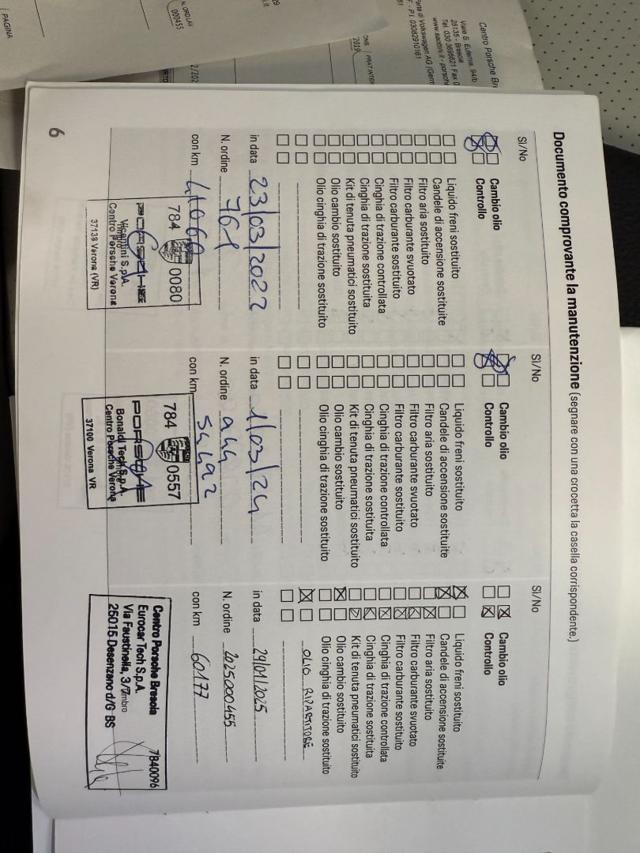 Documento comprovante la manutenzione (segnare con una crocetta la casella corrispondente.)
SI/No
Cambio olio
Controllo
Liquido freni sostituito
Candele di accensione sostituite
Filtro aria sostituito
Filtro carburante svuotato
Filtro carburante sostituito
Cinghia di trazione controllata
Cinghia di trazione sostituita
Kit di tenuta pneumatici sostituito
Olio cambio sostituito
Olio cinghia di trazione sostituito
in data 23/03/2022
N. ordine 761
con km 41060
784 0080
PORSCHE
Centro Porsche Verona
37139 Verona (VR)
SI/No
Cambio olio
Controllo
Liquido freni sostituito
Candele di accensione sostituite
Filtro aria sostituito
Filtro carburante svuotato
Filtro carburante sostituito
Cinghia di trazione controllata
Cinghia di trazione sostituita
Kit di tenuta pneumatici sostituito
Olio cambio sostituito
Olio cinghia di trazione sostituito
in data 1/03/24
N. ordine 944
con km 54492
784 0557
PORSCHE
Bonaldi Tech S.p.A.
Centro Porsche Verona
37100 Verona VR
SI/No
Cambio olio
Controllo
Liquido freni sostituito
Candele di accensione sostituite
Filtro aria sostituito
Filtro carburante svuotato
Filtro carburante sostituito
Cinghia di trazione controllata
Cinghia di trazione sostituita
Kit di tenuta pneumatici sostituito
Olio cambio sostituito
Olio cinghia di trazione sostituito
OLIO RIPARTITORE
in data 29/01/2025
N. ordine 2025000455
con km 60177
Centro Porsche Brescia 7840096
Eurocar Tech S.p.A.
Via Faustinella, 3/7
25015 Desenzano d/G BS
6
Centro Porsche
Viale S. Eufemia, 94b
25135 - Brescia
000455
PAGINA